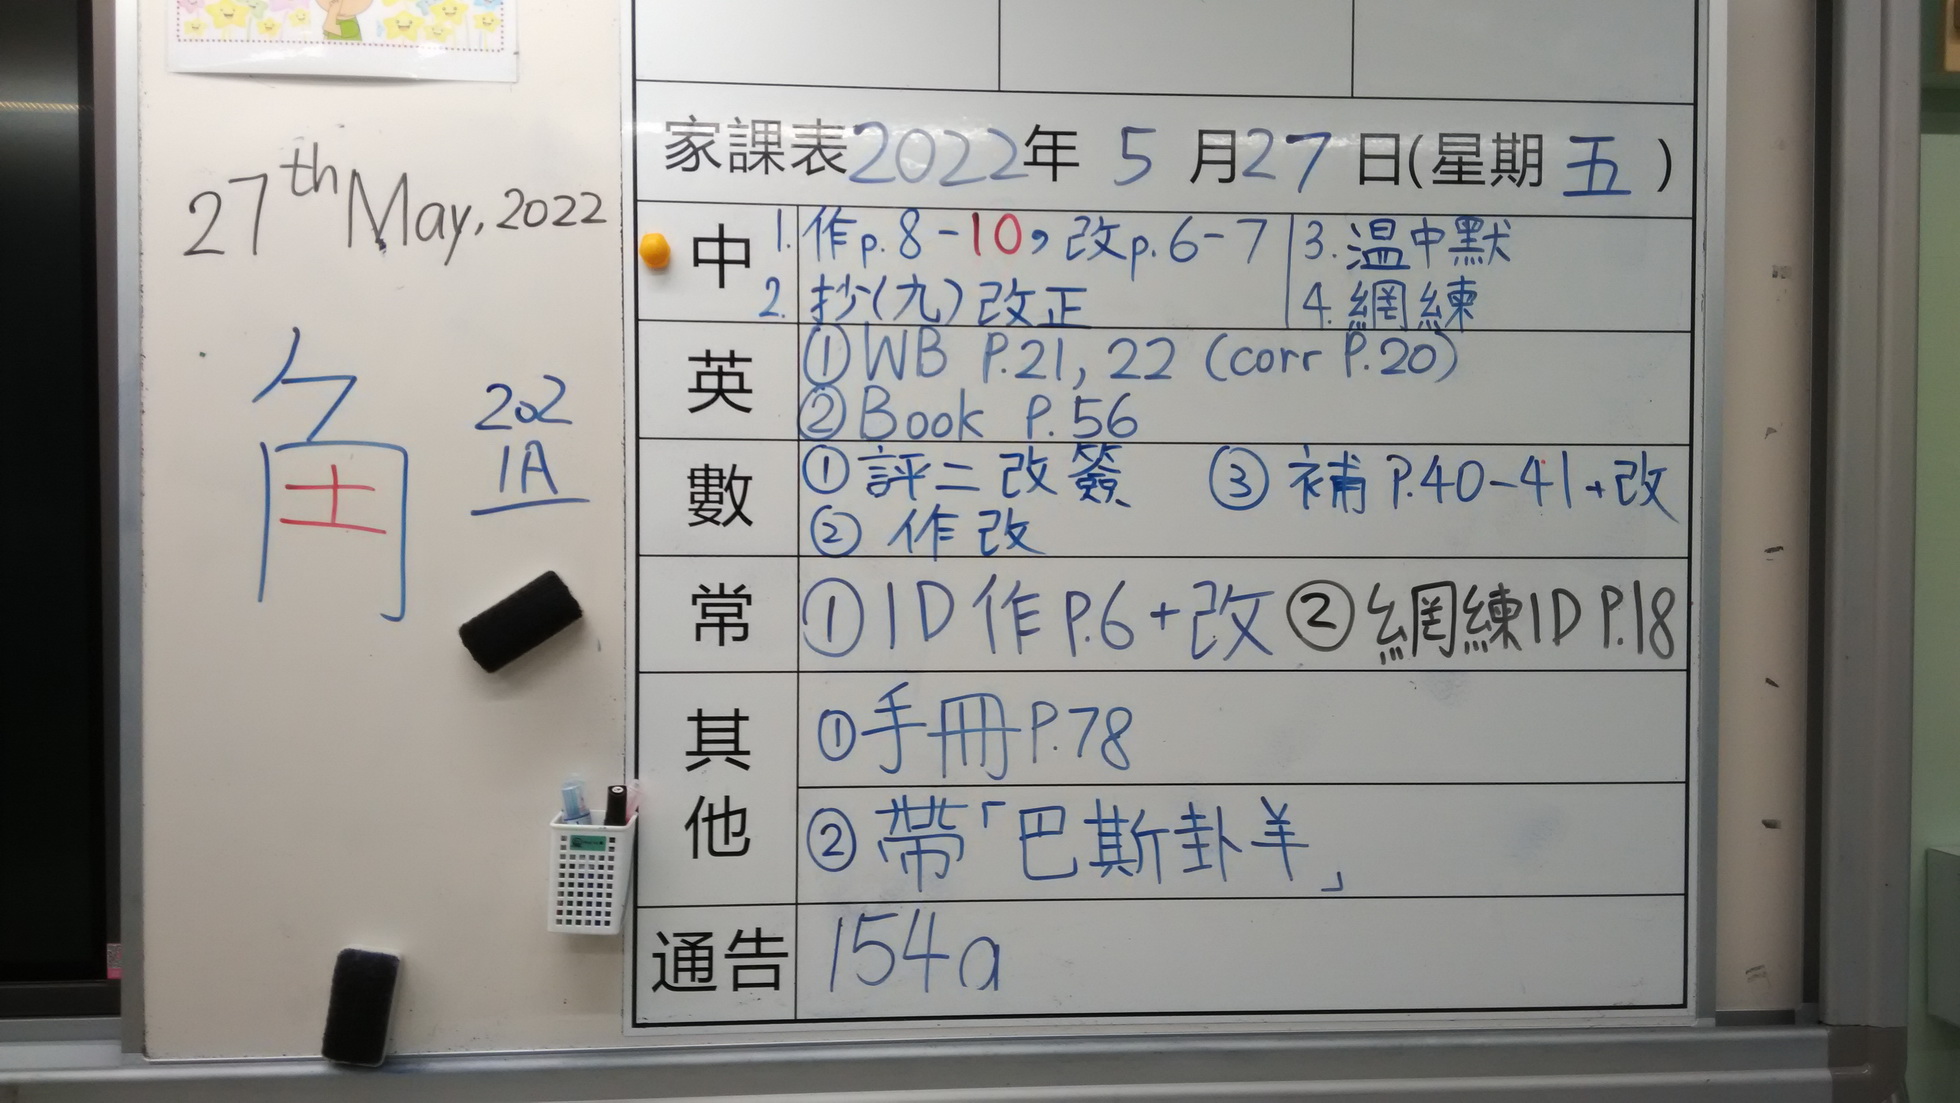 27th May, 2022
角
202
1A
家課表2022年 5 月27 日(星期 五 )
中
1. 作p. 8-10, 改p. 6-7
2. 抄(九)改正
3. 温中默
4. 網練
英
① WB P.21, 22 (corr P.20)
② Book P.56
數
① 評二改簽
② 作改
③ 補 P.40-41+改
常
① 1D 作 P.6+改 ② 網練1D P.18
其他
① 手冊 P.78
② 帶「巴斯卦羊」
通告
154a